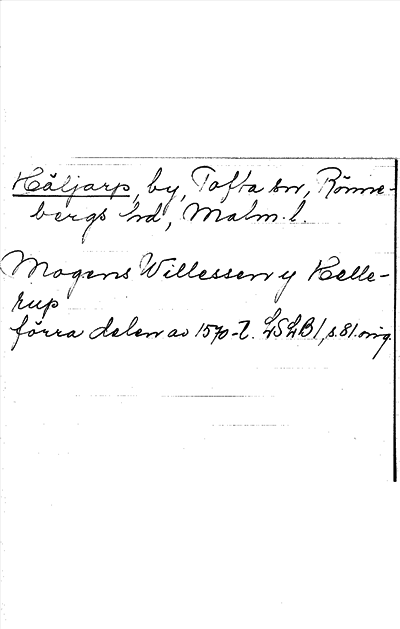 Häljarp, by, Tofta sn, Rönne-
bergs hd, Malm. l.
Mogens Willessen y Helle-
rup
förra delen av 1570-t. LSLB 1, s. 81. orig.